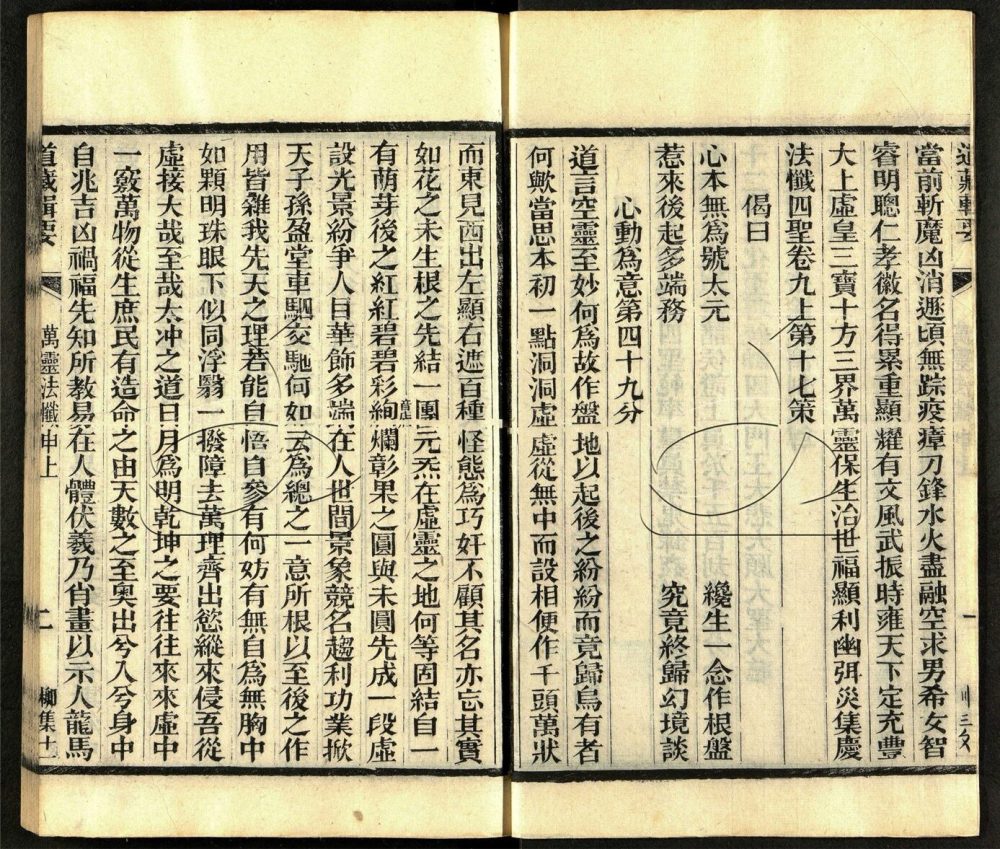 道藏輯要
當前斬魔凶消遯頃無踪疫瘴刀鋒水火盡融空求男希女智
睿明聰仁孝徽名得累重顯耀有文風武振時雍天下定充豐
大上虛皇三寶十方三界萬靈保生治世福顯利幽弭災集慶
法懺四聖卷九上第十七策
偈曰
心本無為號太元 纔生一念作根盤
惹來後起多端務 究竟終歸幻境談
心動為意第四十九分
道言空靈至妙何為故作盤地以起後之紛紛而竟歸烏有者
何歟當思本初一點洞洞虛虛從無中而設相便作千頭萬狀
而東見西出左顯右遮百種怪態為巧奸不顧其名亦忘其實
如花之未生根之先結一團元炁在虛靈之地何等固結自一
有萌芽後之紅紅碧碧彩絢爛彰果之圓與未圓先成一段虛
設光景紛爭人目華飾多端在人世間景象競名趨利功業掀
天子孫盈堂車駟交馳何如云為總之一意所根以至後之作
用皆雜我先天之理若能自悟自參有何妨有無自為無胸中
如顆明珠眼下似同浮翳一撥障去萬理齊出慾縱來侵吾從
虛接大哉至哉太冲之道日月為明乾坤之要往往來來虛中
一竅萬物從生庶民有造命之由天數之至奧出兮入兮身中
自兆吉凶禍福先知所教易在人體伏羲乃肖畫以示人龍馬
道藏輯要 萬靈法懺申上 二 柳集十